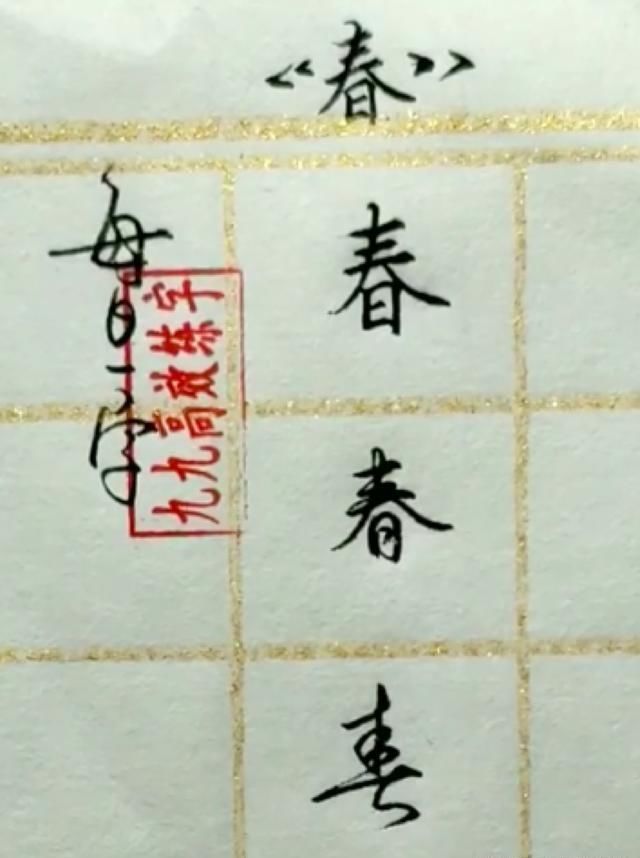 《春》
春
春
春
每日一字
九九高效练字